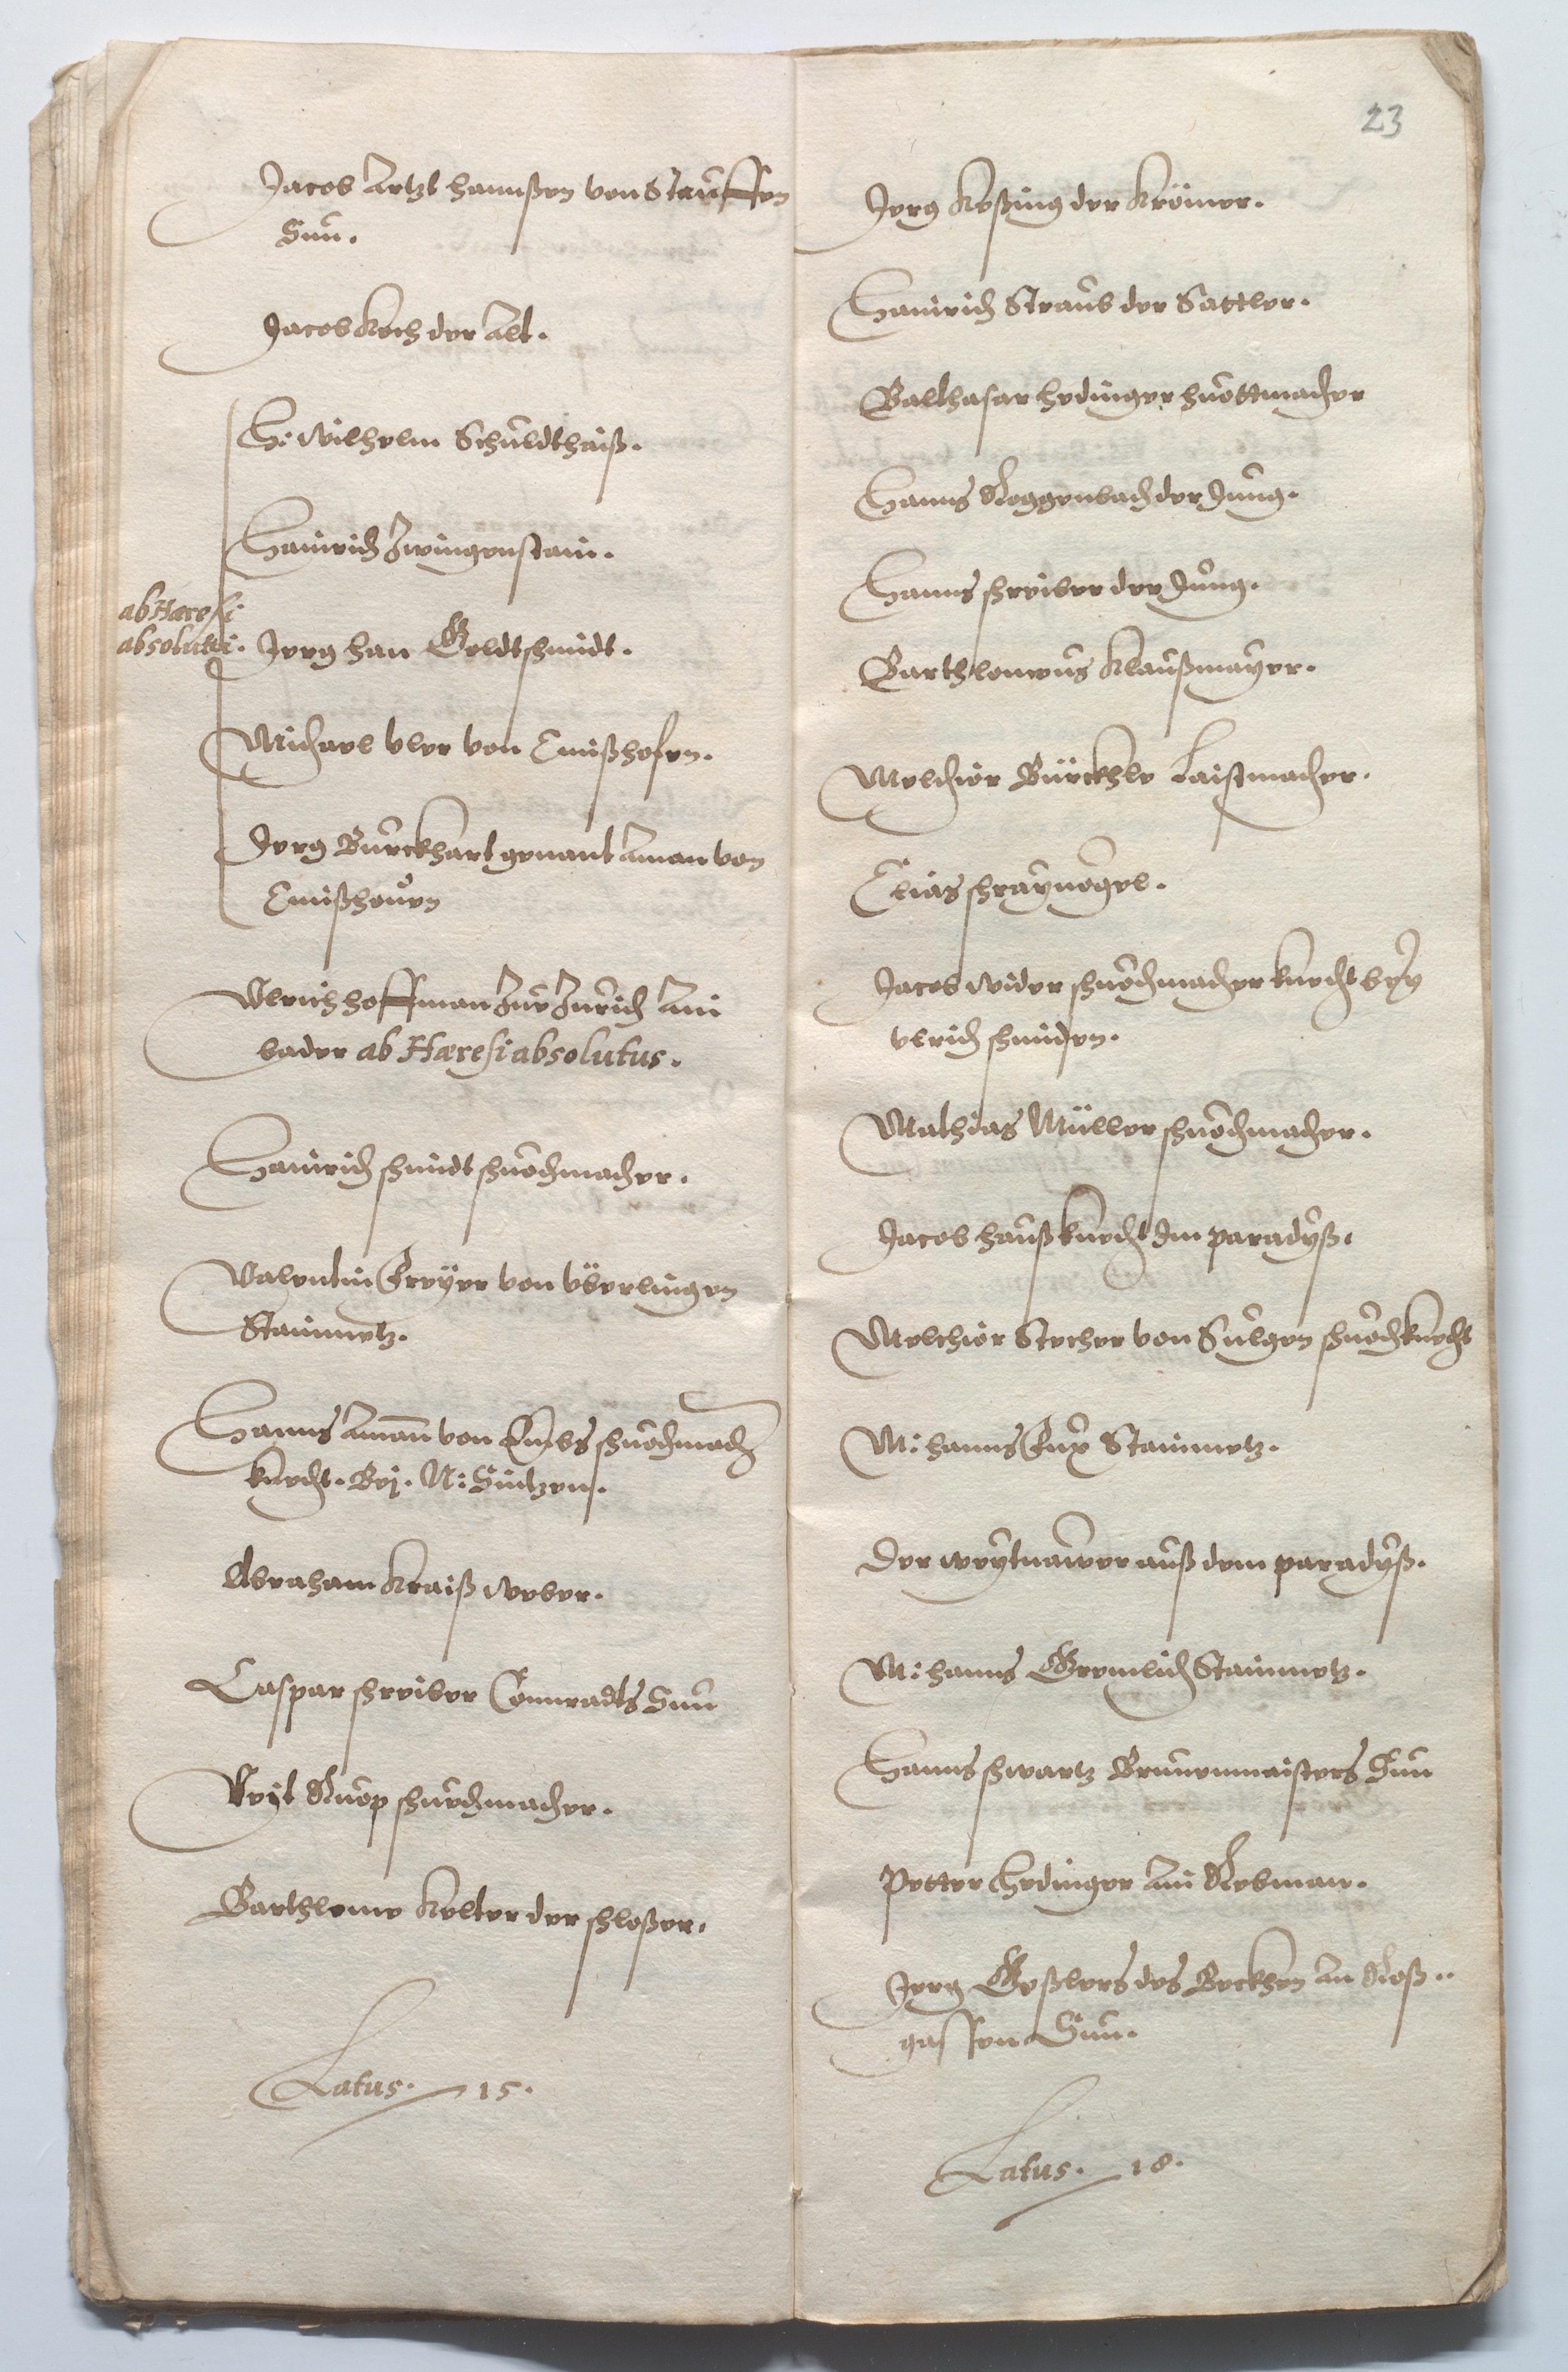 Jacob Artzt hannßen von Stauffen
Sun.
Jacob Koch der Alt.
H: Wilhelm Schuldthaiß.
Hainrich Zwingenstain.
ab Hæresi
absoluti.
Jerg Han Goldtschmidt.
Michael Uler von Emißhofen.
Jerg Burckhart genant Aman von
Emißhouen
Ulrich Hoffman Zur Zürich Ain
bader ab Hæresi absolutus.
Hainrich schmidt schuochmacher.
Valentin Freyer von Überlingen
Stainmetz.
Hanns Amann von Embs schuochmach
knecht. Bej. N: Hintzen.
Abraham Kraiß weber.
Caspar schreiber Connradts Sun
Veyt Ruop schuochmacher.
Barthlome Kelter der schloßer.
Latus. 15.
23
Jerg Keßing der Krömer.
Hainrich Straub der Sattler.
Balthasar hedinger huottmacher
Hanns Roggenbach der Jung.
Hanns schreiber der Jung.
Barthlomeus Klaußmayer.
Melchior Bürckhle Laistmacher.
Elias schrayuogel.
Jacob wider schuochmacher knecht bey
ulrich schmiden.
Mathias Müller schuochmacher.
Jacob haußknecht Im paradyß.
Melchior Stecher von Sulgen schuochknecht
M: hanns Fux Stainmetz.
Der weytnawer auß dem paradyß.
M: hanns Gremlich Stainmetz.
Hanns schwartz Brunenmaisters Sun
Petter Hedinger Ain Rebman.
Jerg Geßlers des Beckhen An Roß-
gassen Sun.
Latus. 18.